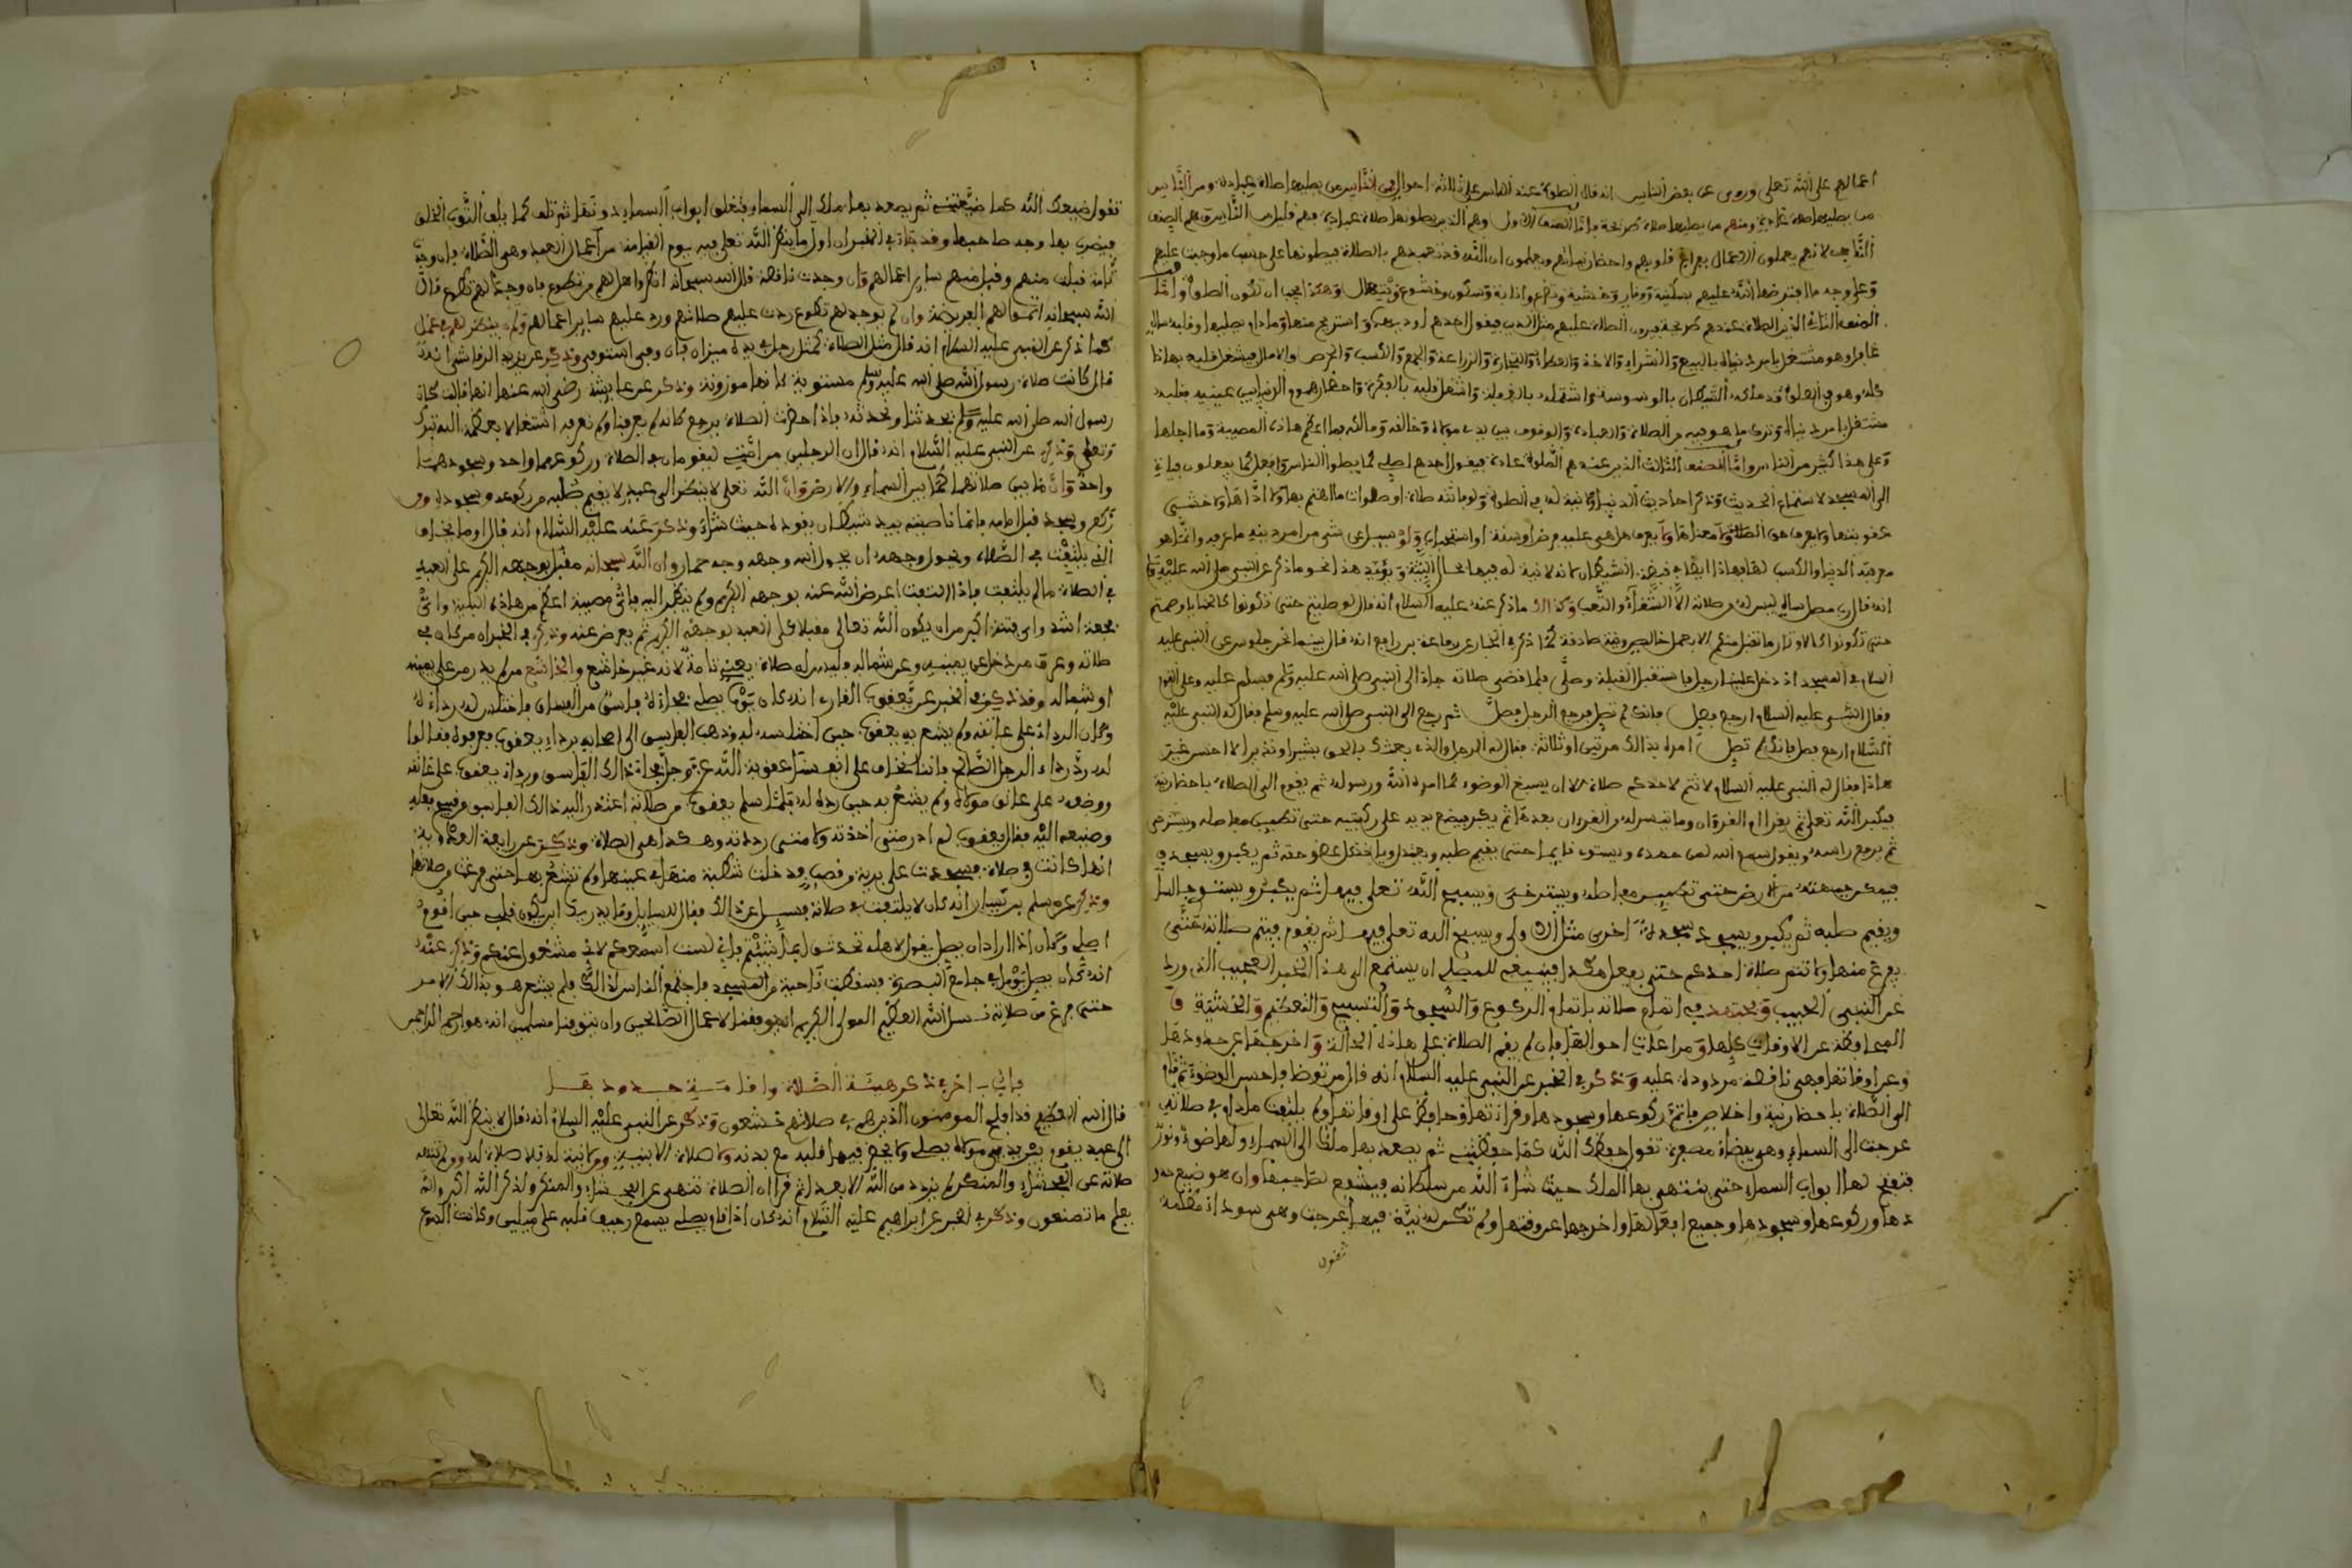 اعمالهم على الله تعلى وروى عن بعض الناس انه قال الصلوة عند الناس على ثلاثة احوال فمن الناس من يصليها صلاة عبادة ومن الناس
من يصليها صلاة عادة ومنهم من يصليها صلاة واما الصنف الاول وهم الذين يصلونها صلاة عبادة فهم قليل من الناس وهم الصنف
لانهم يعملون الاعمال قلوبهم واحضار نياتهم ويعلمون ان الله قد تعبدهم بالصلاة فيصلونها على حسب ما وجبت عليهم
وعلى وجه ما افترضها الله عليهم بسكينة ووقار وخشية وتضرع وانابة وسكون وخشوع وهكذا يجب ان تكون الصلوة واما
الصنف الثاني الذين الصلاة عندهم يرون الصلاة عليهم مثل الدين فيقول احدهم واستريح منها وما دام يصليها وقلبه
وهو مشتغل بامر دنياه بالبيع والشراء والاخذ والعطاء والتجارة والزراعة والجمع والكسب والحرص والامال فيشغل قلبه بهاذا
كله وهو في الصلوة قد ملكه الشيطان بالوسوسة واشتغل قلبه بالفكرة واحضار هموم الدنيا بين عينيه فقلبه
مشتغل بامر دنياه وترك ما هو فيه من الصلاة والعبادة والوقوف بين يدي مولاه وخالقه وما اعظم هاذه المصيبة وما اجلها
وعلى هذا كثير من الناس واما الصنف الثالث الذين عندهم الصلوة عادة فيقول احدهم اصلي كما يصلوا الناس وافعل كما يفعلون فياتي
الى المسجد لاستماع الحديث وذكر احاديث الدنيا ولا نية له في الصلوة
عقوبتها ولا يعرف من الصلاة ولا معناها ولا يعرف ما هي عليه فرض او سنة او استحباب عن شيء من امر دينه ما عرفه وانما هو
معرفة الدنيا والكسب لها الشيطان لانه لا نية له فيها بحال البتة ويؤيد هذا نحو ما ذكر عن النبي صلى الله عليه وسلم
انه قال رب مصل ليس له من صلاته الا والتعب وكذالك ما ذكر عنه عليه السلام انه قال لو صليتم حتى تكونوا كالحنايا وصمتم
حتى تكونوا كالاوتار ما تقبل منكم الا بعمل خالص ونية صادقة كما ذكر في الخبار عن رفاعة بن رافع انه قال بينما نحن جلوس عن النبي عليه
السلام في المسجد اذ دخل علينا رجل فاستقبل القبلة وصلى فلما قضى صلاته جاء الى النبي صلى الله عليه وسلم فسلم عليه وعلى القوم
فقال النبي عليه السلام ارجع فصل فانك لم تصل فرجع الرجل فصلى ثم رجع الى النبي صلى الله عليه وسلم فقال له النبي عليه
السلام ارجع فصل فانك لم تصل امره بذالك مرتين او ثلاثة فقال له الرجل والذي بعثك بالحق بشيرا ونذيرا لا احسن غير
هاذا فقال له النبي عليه السلام لا تتم لاحدكم صلاة الا ان يسبغ الوضوء كما امره الله ورسوله ثم يقوم الى الصلاة باحضار نية
فيكبر الله تعلى ثم يقرا ام القرءان وما تيسر له من القرءان بعدها ثم يكبر فيضع يديه على ركبتيه حتى تطمين مفاصله ويسترخي
ثم يرفع راسه ويقول سمع الله لمن حمده ويستوي قايما حتى يقيم صلبه وياخذ كل عضو حقه ثم يكبر ويسجد
فيمكن جبهته من الارض حتى تطمين مفاصله ويسترخي ويسبح الله تعلى فيها ثم يكبر ويستوي جالسا
ويقيم صلبه ثم يكبر ويسجد سجدة اخرى مثل الاولى ويسبح الله تعلى فيها ثم يقوم فيتم صلاته حتى
يفرغ منها ولا تتم صلاة احدكم حتى يفعل هكذا فينبغي للمصلي ان يستمع الى هذا الخبر العجيب الذي ورد
عن النبي الحبيب ويجتهد في اتمام صلاته باتمام الركوع والسجود والتسبيح والتعظيم والخشية
المحافظة عن الاوقات كلها ومراعات احوالها فان لم يقم الصلاة على هاذه الحالة واخرجها عن حدودها
وعن اوقاتها فهي ناقصة مردودة عليه وذكر في الخبر عن النبي عليه السلام انه قال من توضا فاحسن الوضوء ثم قام
الى الصلاة باحضار نية واخلاص فاتم ركوعها وسجودها وقراءتها وحافظ على اوقاتها ولم يلتفت ما دام في صلاته
عرجت الى السماء وهي بيضاء مسفرة تقول حفظك الله كما حفظتني ثم يصعد بها ملك الى السماء ولها ضوء ونور
فتفتح لها ابواب السماء حتى ينتهي بها الملك حيث شاء الله من سلطانه فيشفع لصاحبها وان هو ضيع حدو
دها وركوعها وسجودها وجميع افعالها واخرجها عن وقتها ولم تكن له نية فيها عرجت وهي سوداء مظلمة
تقول
تقول ضيعك الله كما ضيعتني ثم يصعد بها ملك الى السماء فتغلق ابواب السماء دونها ثم تلف كما يلف الثوب الخلق
فيضرب بها وجه صاحبها وقد جاء في الخبر ان اول ما ينظر الله تعلى فيه يوم القيامة من اعمال العبد وهي الصلاة فان وجد
تامة قبلت منهم وقبل منهم ساير اعمالهم وان وجدت ناقصة قال الله سبحانه انظروا هل لهم من تطوع فان وجد لهم تطوع قال
الله سبحانه اتموا لهم الفريضة وان لم يوجد لهم تطوع ردت عليهم صلاتهم ورد عليهم ساير اعمالهم ولم ينظر لهم في عمل
كما ذكر عن النبي عليه السلام انه قال مثل الصلاة كمثل رجل في يده ميزان فان وفى استوفى وذكر عن يزيد الرقاشي انه
قال كانت صلاة رسول الله صلى الله عليه وسلم مستوية كانها موزونة وذكر عن عايشة رضي الله عنها انها قالت كان
رسول الله صلى الله عليه وسلم يحدثنا ونحدثه فاذا حضرت الصلاة يرجع كانه لم يعرفنا ولم نعرفه اشتغالا بعظمة الله تبارك
وتعلى وذكر عن النبي عليه السلام انه قال ان الرجلين من امتي ليقومان في الصلاة وركوعهما واحد وسجودهما
واحد وان ما بين صلاتهما كما بين السماء والارض وان الله تعلى لا ينظر الى عبد لا يقيم صلبه من ركوعه وسجوده
ركع وسجد قبل امامه فانما ناصيته بيد شيطان يقوده حيث شاء وذكر عنه عليه السلام انه قال اوما يخاف
الذي يلتفت في الصلاة ويحول وجهه ان يحول الله وجهه وجه حمار وان الله سبحانه مقبل بوجهه الكريم على العبد
في الصلاة ما لم يلتفت فاذا التفت اعرض الله عنه بوجهه الكريم ولم ينظر اليه فاي مصيبة اعظم من هاذه البلية واي
فجعة اشد واي فتنة اكبر من ان يكون الله تعالى مقبلا على العبد بوجهه الكريم ثم يعرض عنه وذكر في الخبر انه من كان في
صلاته وعرف من دخل عن يمينه وعن شماله فليس له صلاة يعني تامة لانه غير خاشع والخاشع من لم يدر من على يمينه
او شماله وقد ذكر في الخبر عن يعقوب القارء انه كان يوما يصلي فجاء فاختلس له رداءه
وكان الرداء على عاتقه ولم يشعر به يعقوب حين اختلسه له وذهب الى اصحابه برداء يعقوب فعرفوه فقالوا
له رد رداء الرجل الصالح فاننا نخاف على انفسنا عقوبة الله عز وجل فجاء ذالك ورداء يعقوب على عاتقه
ووضعه على عاتق مولاه ولم يشعر به حين رده له فلما سلم يعقوب من صلاته اعتذر اليه ذالك
وصنيعه اليه فقال يعقوب لم ادر متى اخذته ولا متى رددته وهكذا هي الصلاة وذكر عن رابعة العدوية
انها كانت في صلاة فسجدت على بردية وقصب فدخلت شظية منها في عينها ولم تشعر بها حتى فرغت من صلاتها
وذكر عن مسلم بن يسار انه كان لا يلتفت في صلاته فسيل عن ذالك فقال للسايل وما يدريك اين يكون قلبي حين اقوم
اصلي وكان اذا اراد ان يصلي يقول لاهله تحدثوا بما شئتم فاني لست اسمعكم لاني مشغول عنكم وذكر عنه
انه كان يصلي يوما في جامع البصرة فسقطت ناحية من المسجد فاجتمع الناس لذالك فلم يشعر هو بذالك الامر
حتى فرغ من صلاته نسال الله العظيم المولى الكريم ان يوفقنا لاعمال الصالحين وان يتوفنا مسلمين انه هو ارحم الراحمين
باب اخر في ذكر هيئة الصلاة واقامة حدودها
قال الله العظيم قد افلح المومنون الذين هم في صلاتهم خشعون وذكر عن النبي عليه السلام انه قال لا ينظر الله تعالى
الى عبد يقوم بين يدي مولاه يصلي ولا يحضر فيها قلبه مع بدنه ولا صلاة الا بنية ومن لا نية له فلا صلاة له ومن لم تنهه
صلاته عن الفحشاء والمنكر لم يزدد من الله الا بعدا ثم قرا ان الصلاة تنهى عن الفحشاء والمنكر ولذكر الله اكبر والله
يعلم ما تصنعون وذكر في الخبر عن ابراهيم عليه السلام انه كان اذا قام يصلي يسمع رجيف قلبه على ميلين وكانت